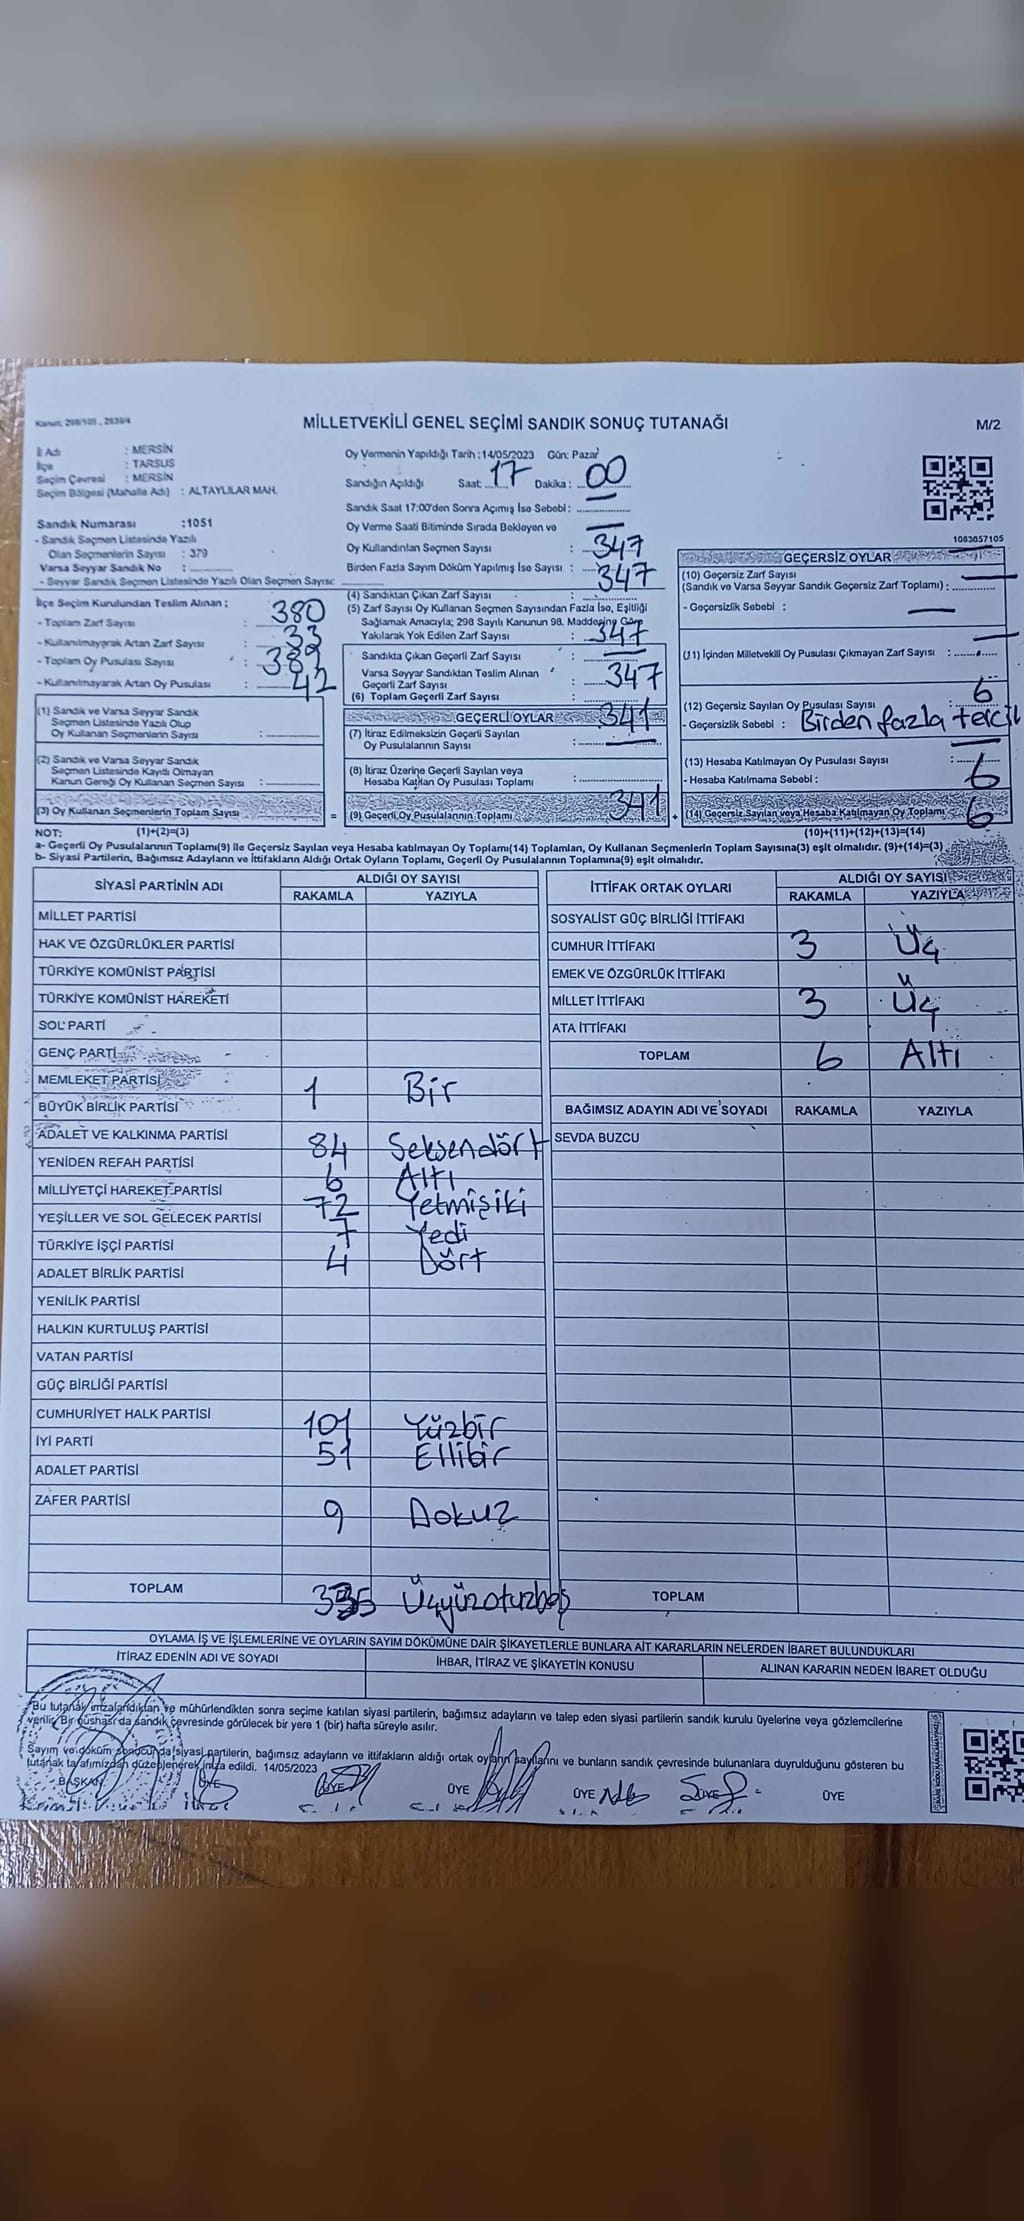 Kanun: 298/105 , 2839/4
MİLLETVEKİLİ GENEL SEÇİMİ SANDIK SONUÇ TUTANAĞI
M/2
İl Adı : MERSİN
İlçe : TARSUS
Seçim Çevresi : MERSİN
Seçim Bölgesi (Mahalle Adı) : ALTAYLILAR MAH.
Sandık Numarası :1051
- Sandık Seçmen Listesinde Yazılı
Olan Seçmenlerin Sayısı : 379
Varsa Seyyar Sandık No :
- Seyyar Sandık Seçmen Listesinde Yazılı Olan Seçmen Sayısı:
İlçe Seçim Kurulundan Teslim Alınan ;
- Toplam Zarf Sayısı : 380
- Kullanılmayarak Artan Zarf Sayısı : 33
- Toplam Oy Pusulası Sayısı : 389
- Kullanılmayarak Artan Oy Pusulası : 42
(1) Sandık ve Varsa Seyyar Sandık
Seçmen Listesinde Yazılı Olup
Oy Kullanan Seçmenlerin Sayısı :
(2) Sandık ve Varsa Seyyar Sandık
Seçmen Listesinde Kayıtlı Olmayan
Kanun Gereği Oy Kullanan Seçmen Sayısı :
(3) Oy Kullanan Seçmenlerin Toplam Sayısı
(1)+(2)=(3)
Oy Vermenin Yapıldığı Tarih :14/05/2023 Gün: Pazar
Sandığın Açıldığı Saat: 17 Dakika : 00
Sandık Saat 17:00'den Sonra Açımış İse Sebebi :
Oy Verme Saati Bitiminde Sırada Bekleyen ve
Oy Kullandırılan Seçmen Sayısı : 347
Birden Fazla Sayım Döküm Yapılmış İse Sayısı : 347
(4) Sandıktan Çıkan Zarf Sayısı :
(5) Zarf Sayısı Oy Kullanan Seçmen Sayısından Fazla İse, Eşitliği
Sağlamak Amacıyla; 298 Sayılı Kanunun 98. Maddesine Göre
Yakılarak Yok Edilen Zarf Sayısı : 347
Sandıkta Çıkan Geçerli Zarf Sayısı :
Varsa Seyyar Sandıktan Teslim Alınan
Geçerli Zarf Sayısı : 347
(6) Toplam Geçerli Zarf Sayısı :
GEÇERLİ OYLAR 341
(7) İtiraz Edilmeksizin Geçerli Sayılan
Oy Pusulalarının Sayısı :
(8) İtiraz Üzerine Geçerli Sayılan veya
Hesaba Katılan Oy Pusulası Toplamı :
= (9) Geçerli Oy Pusulalarının Toplamı : 341 +
1083057105
GEÇERSİZ OYLAR
(10) Geçersiz Zarf Sayısı
(Sandık ve Varsa Seyyar Sandık Geçersiz Zarf Toplamı) :
- Geçersizlik Sebebi :
(11) İçinden Milletvekili Oy Pusulası Çıkmayan Zarf Sayısı :
(12) Geçersiz Sayılan Oy Pusulası Sayısı : 6
- Geçersizlik Sebebi : Birden fazla tercih
(13) Hesaba Katılmayan Oy Pusulası Sayısı :
- Hesaba Katılmama Sebebi : 6
(14) Geçersiz Sayılan veya Hesaba Katılmayan Oy Toplamı 6
(10)+(11)+(12)+(13)=(14)
NOT:
a- Geçerli Oy Pusulalarının Toplamı(9) ile Geçersiz Sayılan veya Hesaba katılmayan Oy Toplamı(14) Toplamları, Oy Kullanan Seçmenlerin Toplam Sayısına(3) eşit olmalıdır. (9)+(14)=(3)
b- Siyasi Partilerin, Bağımsız Adayların ve İttifakların Aldığı Ortak Oyların Toplamı, Geçerli Oy Pusulalarının Toplamına(9) eşit olmalıdır.
SİYASİ PARTİNİN ADI ALDIĞI OY SAYISI
RAKAMLA YAZIYLA
MİLLET PARTİSİ
HAK VE ÖZGÜRLÜKLER PARTİSİ
TÜRKİYE KOMÜNİST PARTİSİ
TÜRKİYE KOMÜNİST HAREKETİ
SOL PARTİ
GENÇ PARTİ
MEMLEKET PARTİSİ 1 Bir
BÜYÜK BİRLİK PARTİSİ
ADALET VE KALKINMA PARTİSİ 84 Seksendört
YENİDEN REFAH PARTİSİ 6 Altı
MİLLİYETÇİ HAREKET PARTİSİ 72 Yetmişiki
YEŞİLLER VE SOL GELECEK PARTİSİ 7 Yedi
TÜRKİYE İŞÇİ PARTİSİ 4 Dört
ADALET BİRLİK PARTİSİ
YENİLİK PARTİSİ
HALKIN KURTULUŞ PARTİSİ
VATAN PARTİSİ
GÜÇ BİRLİĞİ PARTİSİ
CUMHURİYET HALK PARTİSİ 101 Yüzbir
İYİ PARTİ 51 Ellibir
ADALET PARTİSİ
ZAFER PARTİSİ 9 Dokuz
TOPLAM 335 Üçyüzotuzbeş
İTTİFAK ORTAK OYLARI ALDIĞI OY SAYISI
RAKAMLA YAZIYLA
SOSYALİST GÜÇ BİRLİĞİ İTTİFAKI
CUMHUR İTTİFAKI 3 Üç
EMEK VE ÖZGÜRLÜK İTTİFAKI
MİLLET İTTİFAKI 3 Üç
ATA İTTİFAKI
TOPLAM 6 Altı
BAĞIMSIZ ADAYIN ADI VE SOYADI RAKAMLA YAZIYLA
SEVDA BUZCU
TOPLAM
OYLAMA İŞ VE İŞLEMLERİNE VE OYLARIN SAYIM DÖKÜMÜNE DAİR ŞİKAYETLERLE BUNLARA AİT KARARLARIN NELERDEN İBARET BULUNDUKLARI
İTİRAZ EDENİN ADI VE SOYADI İHBAR, İTİRAZ VE ŞİKAYETİN KONUSU ALINAN KARARIN NEDEN İBARET OLDUĞU
Bu tutanak imzalandıktan ve mühürlendikten sonra seçime katılan siyasi partilerin, bağımsız adayların ve talep eden siyasi partilerin sandık kurulu üyelerine veya gözlemcilerine
verilir. Bir nüshası da sandık çevresinde görülecek bir yere 1 (bir) hafta süreyle asılır.
Sayım ve döküm sonucunda siyasi partilerin, bağımsız adayların ve ittifakların aldığı ortak oyların sayılarını ve bunların sandık çevresinde bulunanlara duyrulduğunu gösteren bu
tutanak tarafımızdan düzenlenerek imza edildi. 14/05/2023
BAŞKAN ÜYE ÜYE ÜYE ÜYE ÜYE ÜYE